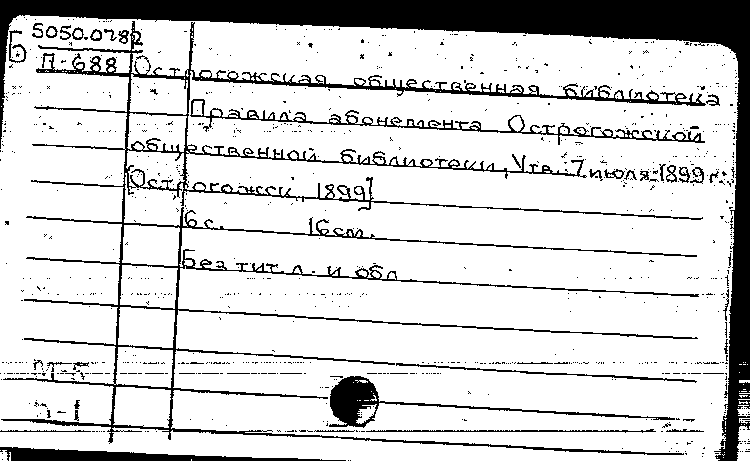 5050.0782
Б П-688 Острогожская общественная библиотека.
Правила абонемента Острогожской
общественной библиотеки, Утв. 7 июля 1899 г.
[Острогожск, 1899]
6 с. 16 см.
Без тит. л. и обл.
М-Б